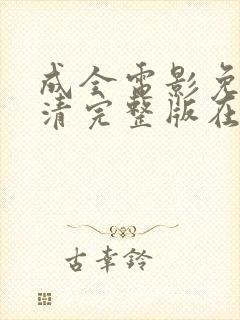 成全电影免
清完整版在
古幸铃